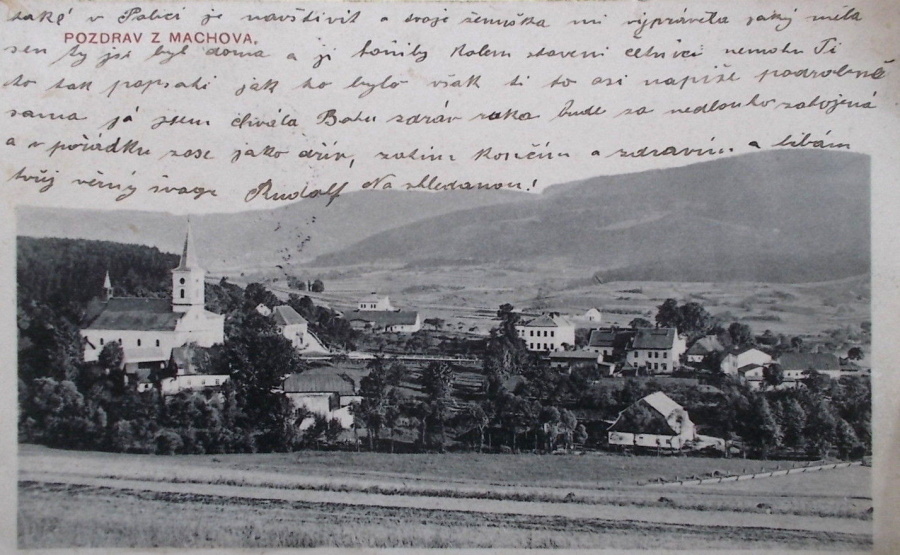 také v Polici je navštívit a tvoje ženuška mi vyprávěla jaký měla
POZDRAV Z MACHOVA.
sen ty jsi byl doma a ji honily kolem stavení četníci nemohu Ti
to tak popsati jak to bylo však ti to asi napíše podrobně
sama já jsem chvála Bohu zdráv ruka bude za nedlouho zahojená
a v pořádku zase jako dřív, zatím končím a zdravím a líbám
tvůj věrný švagr Rudolf Na shledanou!